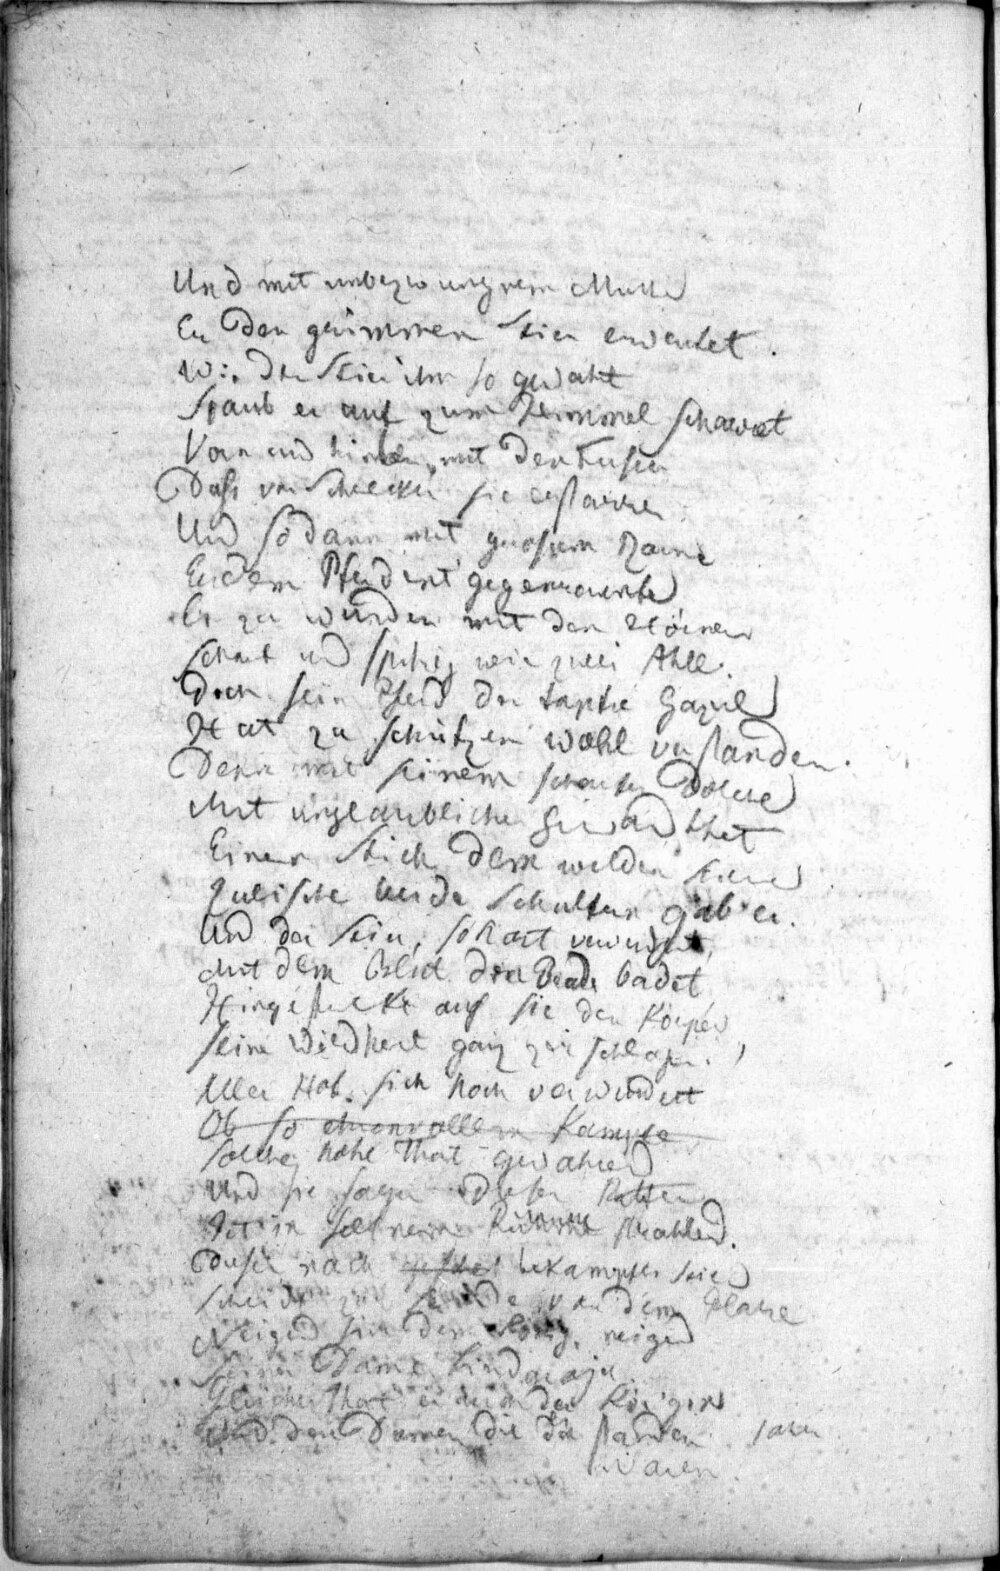 Und mit unbezwungnem Muthe
Er den grimmen Stier erwartet.
Wie der Stier ihn so gewahrt
Staub er auf zum Himmel scharret
Vorn und hinten mit den Füßen
Daß vor Schrecken sie erstarren
Und sodann mit großem
Er dem Pferd
Es zu wunden mit den Hörnern
Scharf und spitzig wie zwei Ahle.
Doch sein Pferd der tapfre Gazul
Hat zu schützen wohl verstanden.
Denn mit seinem scharfen Dolche
Mit unglaublicher Gewandtheit
Einen Stich dem wilden Stiere
Zwischen beide Schultern gab er.
Und der Stier, so hart verwundet,
Mit dem Blut den Boden badet
Hingestreckt auf sie den Körper
Seine Wildheit ganz zerschlagen.
Aller Hof sich hoch verwundert
Ob so ehrenvollem Kampfe
Solche hohe That gewahrend
Und sie sagen dieser Ritter
Ist in seltnem Ruhme strahlend.
Dieser nach bekämpftem Stier
Scheidet von dem Platze
Neigend sich dem König, neigend
Seiner Dame Lindaraja
Gleiches that er auch der Königin
Und den Damen die da standen
waren